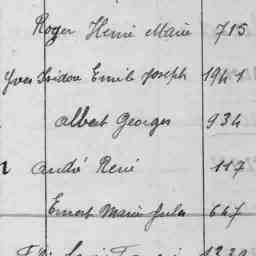 Roger Henri Marie 715
Yves Isidore Emile Joseph 1941
Albert Georges 934
André René 117
Ernest Marie Jules 647